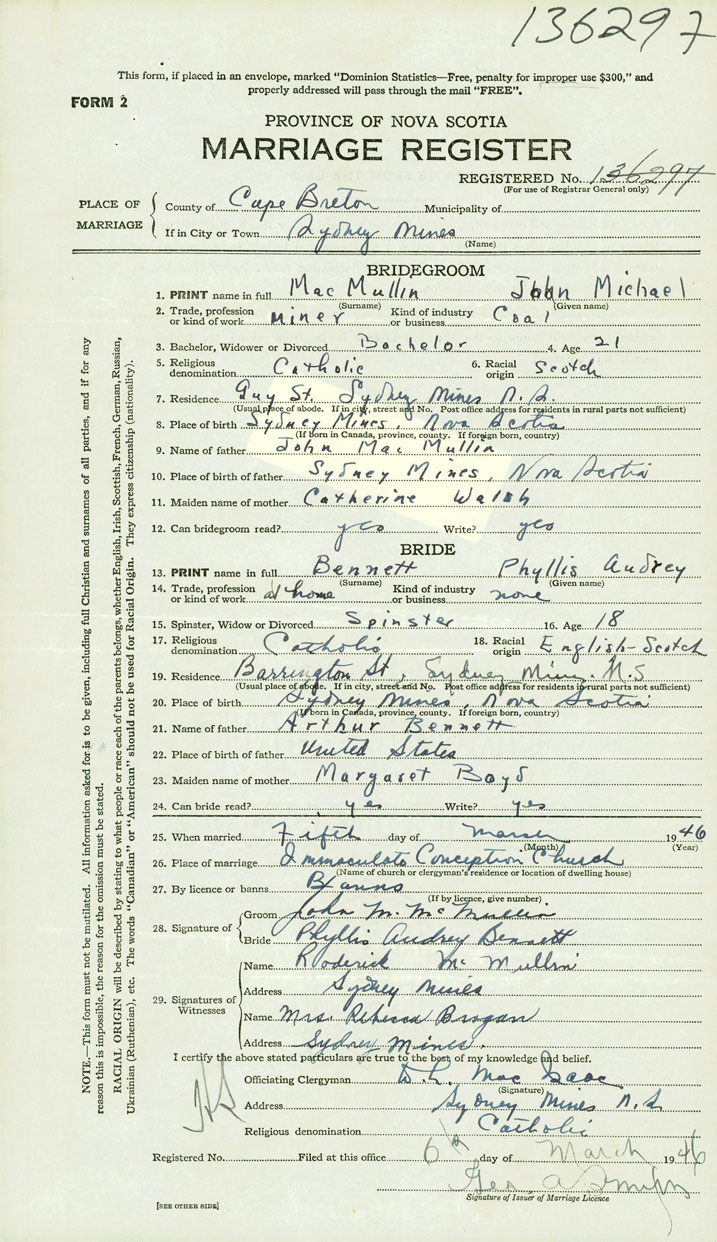 136297
This form, if placed in an envelope, marked "Dominion Statistics—Free, penalty for improper use $300," and
properly addressed will pass through the mail "FREE".
FORM 2
PROVINCE OF NOVA SCOTIA
MARRIAGE REGISTER
REGISTERED No. 136297
(For use of Registrar General only)
PLACE OF MARRIAGE
County of Cape Breton Municipality of
If in City or Town Sydney Mines
(Name)
BRIDEGROOM
1. PRINT name in full Mac Mullin John Michael
(Surname) (Given name)
2. Trade, profession or kind of work miner Kind of industry or business Coal
3. Bachelor, Widower or Divorced Bachelor 4. Age 21
5. Religious denomination Catholic 6. Racial origin Scotch
7. Residence Guy St. Sydney Mines N.S.
(Usual place of abode. If in city, street and No. Post office address for residents in rural parts not sufficient)
8. Place of birth Sydney Mines, Nova Scotia
(If born in Canada, province, county. If foreign born, country)
9. Name of father John Mac Mullin
10. Place of birth of father Sydney Mines, Nova Scotia
11. Maiden name of mother Catherine Walsh
12. Can bridegroom read? yes Write? yes
BRIDE
13. PRINT name in full Bennett Phyllis Audrey
(Surname) (Given name)
14. Trade, profession or kind of work at home Kind of industry or business none
15. Spinster, Widow or Divorced Spinster 16. Age 18
17. Religious denomination Catholic 18. Racial origin English-Scotch
19. Residence Barrington St, Sydney Mines. N.S
(Usual place of abode. If in city, street and No. Post office address for residents in rural parts not sufficient)
20. Place of birth Sydney Mines, Nova Scotia
(If born in Canada, province, county. If foreign born, country)
21. Name of father Arthur Bennett
22. Place of birth of father United States
23. Maiden name of mother Margaret Boyd
24. Can bride read? yes Write? yes
25. When married Fifth day of March 1946
(Month) (Year)
26. Place of marriage Immaculate Conception Church
(Name of church or clergyman's residence or location of dwelling house)
27. By licence or banns Banns
(If by licence, give number)
28. Signature of
Groom John M. McMullin
Bride Phyllis Audrey Bennett
29. Signatures of Witnesses
Name Roderick McMullin
Address Sydney Mines
Name Mrs. Rebecca Brogan
Address Sydney Mines.
I certify the above stated particulars are true to the best of my knowledge and belief.
Officiating Clergyman Mac Isaac
(Signature)
Address Sydney Mines N.S
Religious denomination Catholic
Registered No. Filed at this office 6th day of March 1946
Geo. A
Signature of Issuer of Marriage Licence
[SEE OTHER SIDE]
NOTE.—This form must not be mutilated. All information asked for is to be given, including full Christian and surnames of all parties, and if for any
reason this is impossible, the reason for the omission must be stated.
RACIAL ORIGIN will be described by stating to what people or race each of the parents belongs, whether English, Irish, Scottish, French, German, Russian,
Ukrainian (Ruthenian), etc. The words "Canadian" or "American" should not be used for Racial Origin. They express citizenship (nationality).